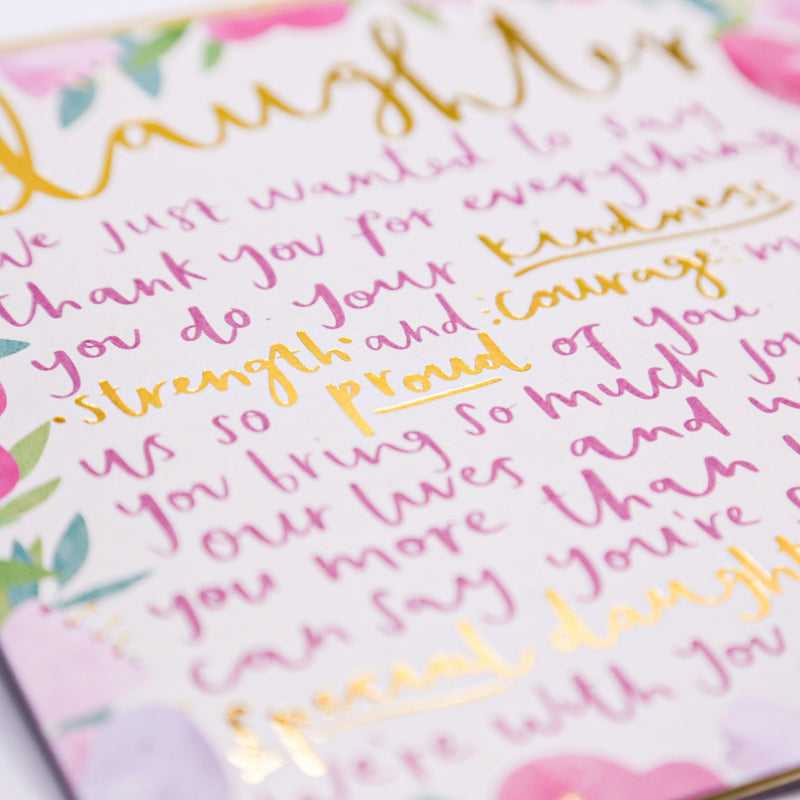 daughter
We just wanted to say
thank you for everything
you do your kindness
strength and courage
us so proud of you
you bring so much
our lives and
you more than
can say you're
special
we're with you